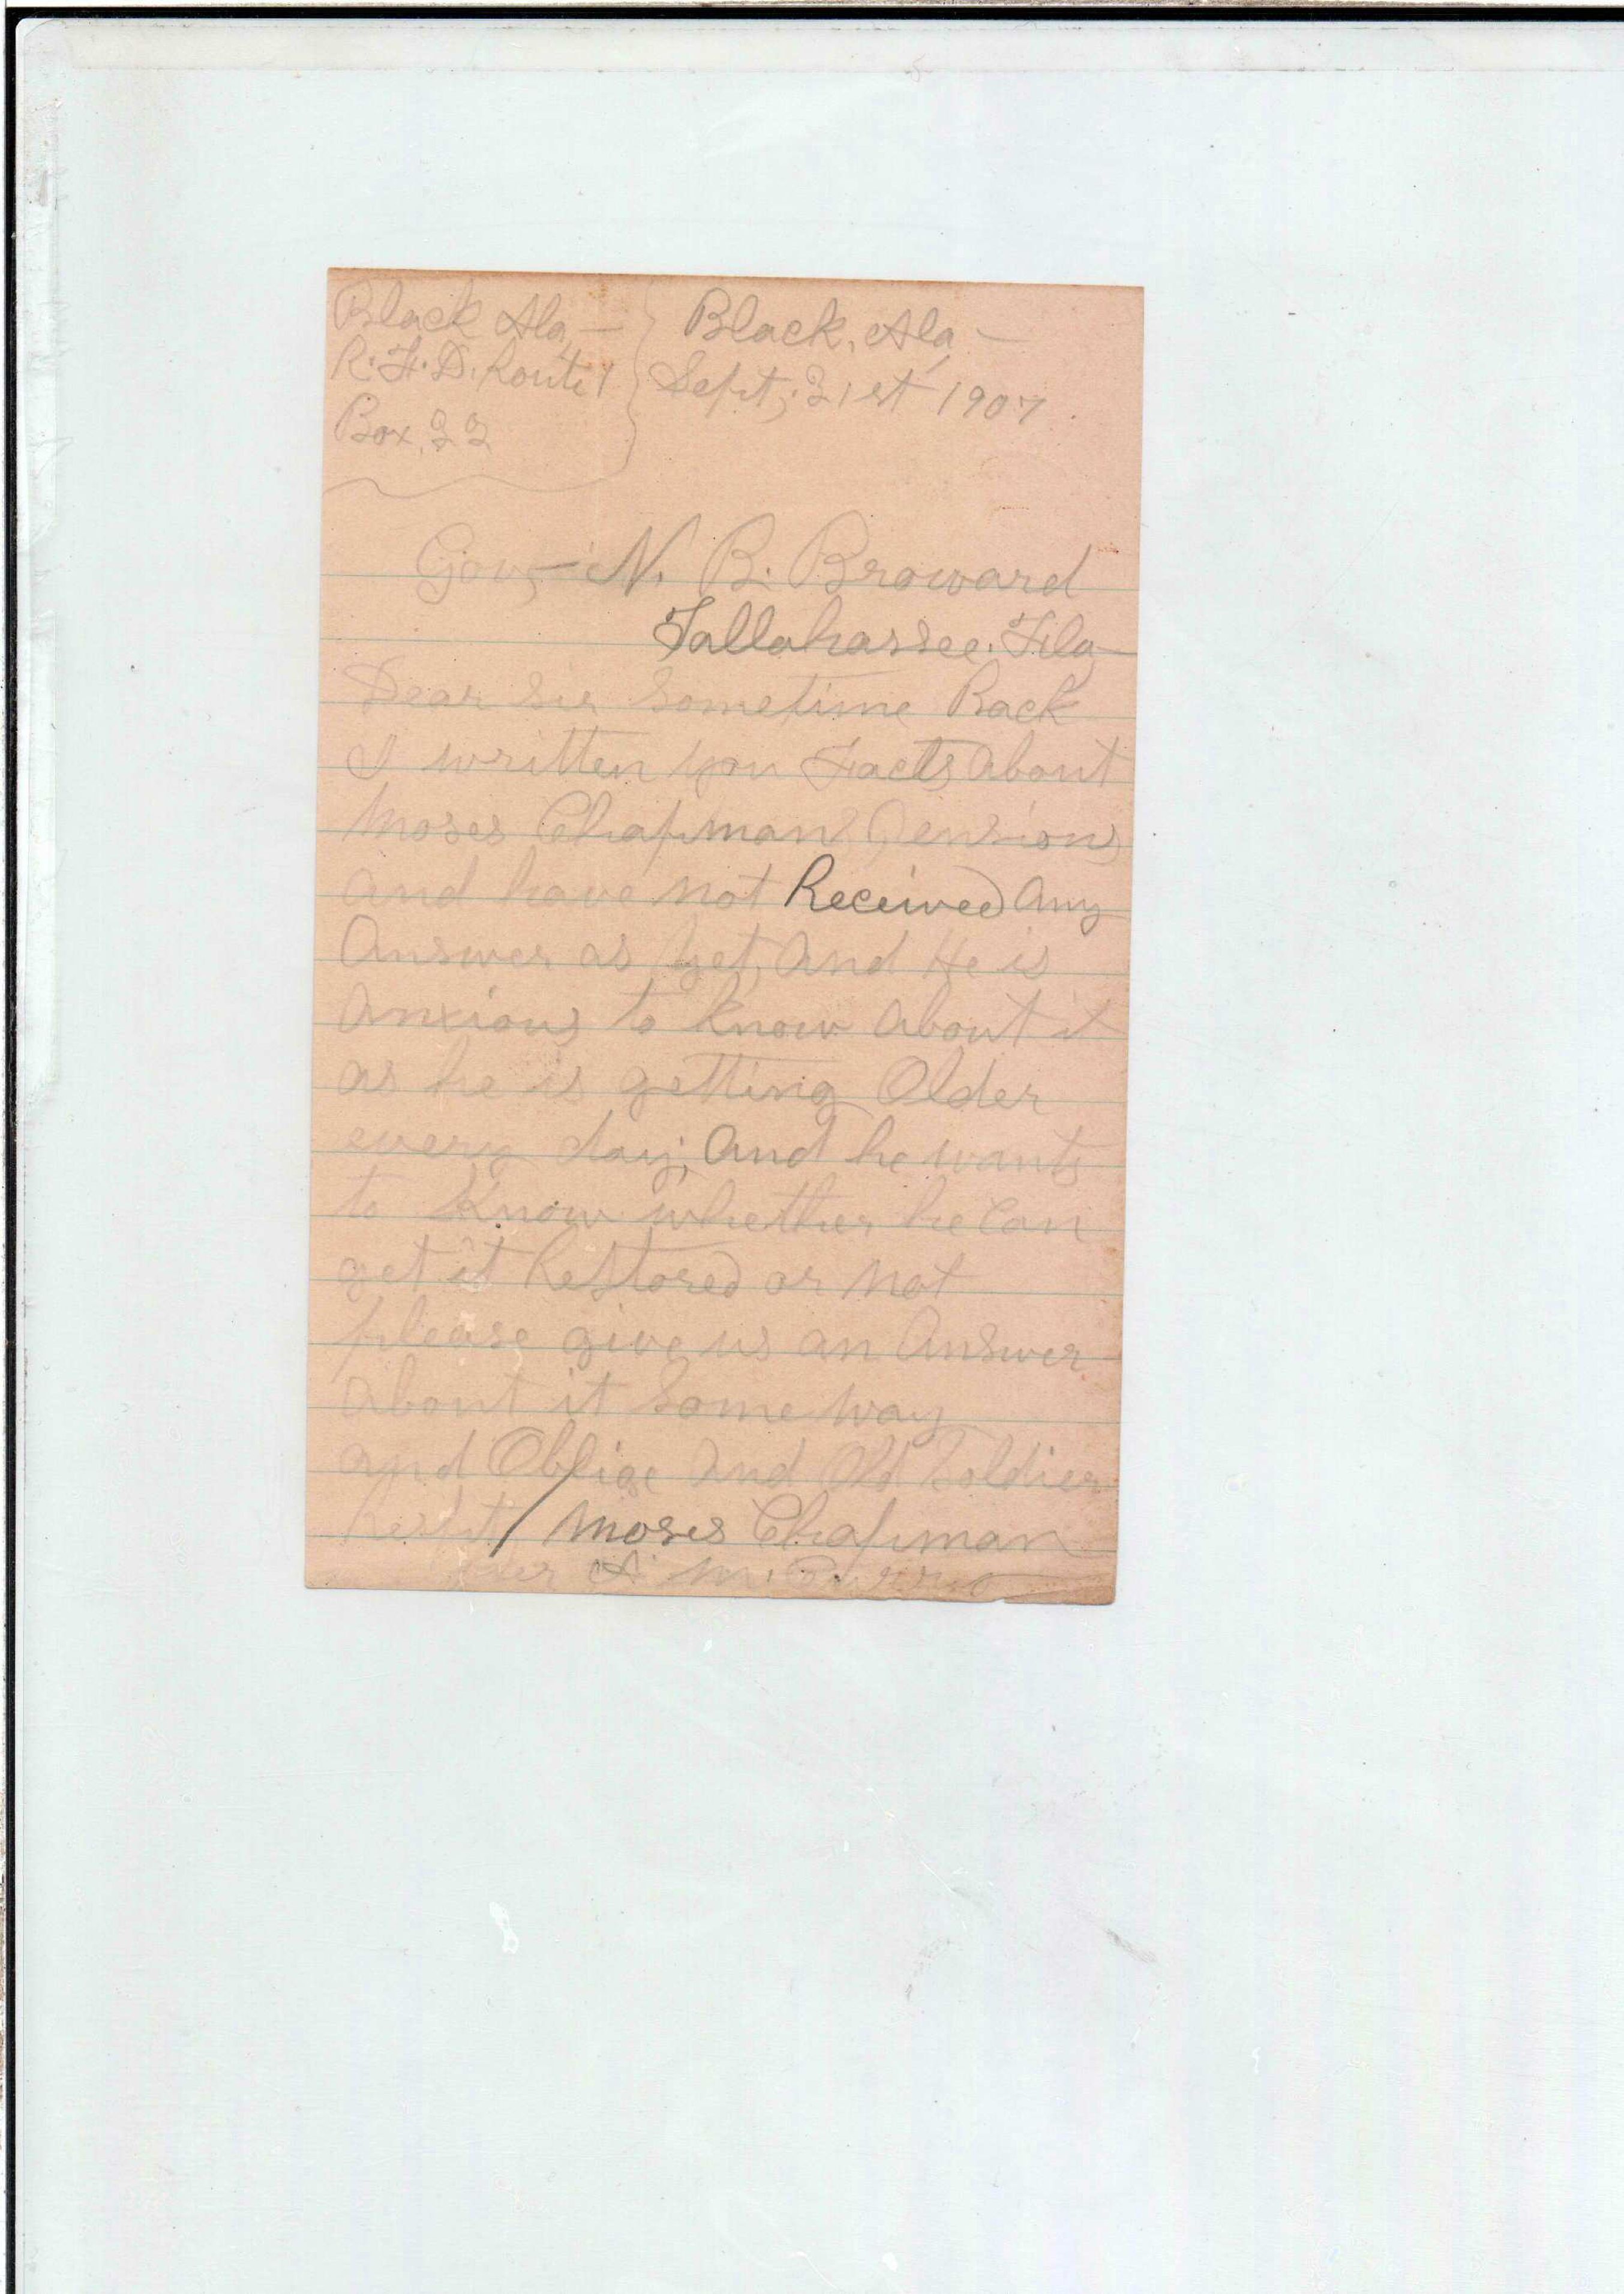 Black Ala,
R. F. D. Route 1
Box, 22
Black, Ala,
Sept, 21st 1907
Gov, N. B. Broward
Tallahassee, Fla
Dear Sir Sometime Back
I written you Facts about
Moses Chapmans Pension,
and have not Received any
Answer as Yet, and He is
Anxious to know about it
as he is getting Older
every day, and he wants
to Know whether he Can
get it Restored or not
please give us an Answer
about it Some way
and Oblige and Old Soldier
Resptf Moses Chapman
Per A. M.